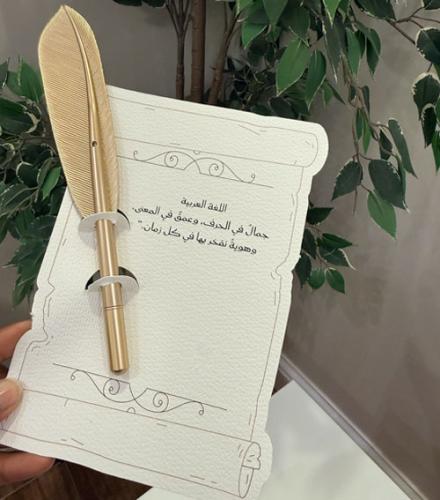 اللغة العربية
جمالٌ في الحرف، وعمقٌ في المعنى،
وهويةٌ نفخر بها في كل زمان."